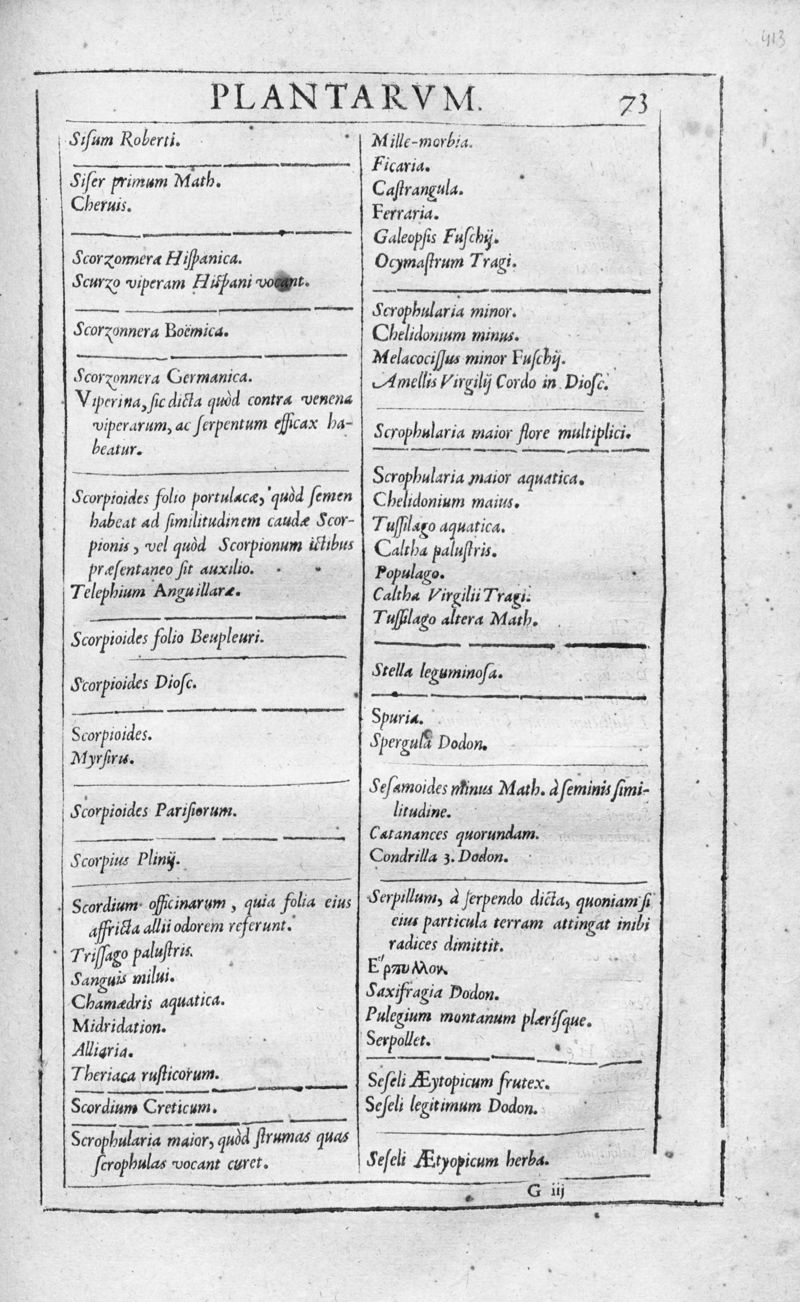 413
PLANTARVM.
73
Siſum Roberti.
Siſer primum Math.
Cheruis.
Scorzonnera Hiſpanica.
Scurzo viperam Hiſpani vocant.
Scorzonnera Boëmica.
Scorzonnera Germanica.
Viperina, ſic dicta quòd contra venena
viperarum, ac ſerpentum efficax ha-
beatur.
Scorpioides folio portulacæ, quòd ſemen
habeat ad ſimilitudinem caudæ Scor-
pionis, vel quòd Scorpionum ictibus
præſentaneo ſit auxilio.
Telephium Anguillaræ.
Scorpioides folio Beupleuri.
Scorpioides Dioſc.
Scorpioides.
Myrſirus.
Scorpioides Pariſiorum.
Scorpius Plinij.
Scordium officinarum, quia folia eius
affricta allii odorem referunt.
Triſſago paluſtris.
Sanguis milui.
Chamædris aquatica.
Midridation.
Alliaria.
Theriaca ruſticorum.
Scordium Creticum.
Scrophularia maior, quòd ſtrumas quas
ſcrophulas vocant curet.
Mille-morbia.
Ficaria.
Caſtrangula.
Ferraria.
Galeopſis Fuſchij.
Ocymaſtrum Tragi.
Scrophularia minor.
Chelidonium minus.
Melacociſſus minor Fuſchij.
Amellis Virgilij Cordo in Dioſc.
Scrophularia maior flore multiplici.
Scrophularia maior aquatica.
Chelidonium maius.
Tuſſilago aquatica.
Caltha paluſtris.
Populago.
Caltha Virgilii Tragi.
Tuſſilago altera Math.
Stella leguminoſa.
Spuria.
Spergula Dodon.
Seſamoides minus Math. à ſeminis ſimi-
litudine.
Catanances quorundam.
Condrilla 3. Dodon.
Serpillum, à ſerpendo dicta, quoniam ſi
eius particula terram attingat inibi
radices dimittit.
Ἑρπυλλον.
Saxifragia Dodon.
Pulegium montanum plæriſque.
Serpollet.
Seſeli Æytopicum frutex.
Seſeli legitimum Dodon.
Seſeli Ætyopicum herba.
G iij